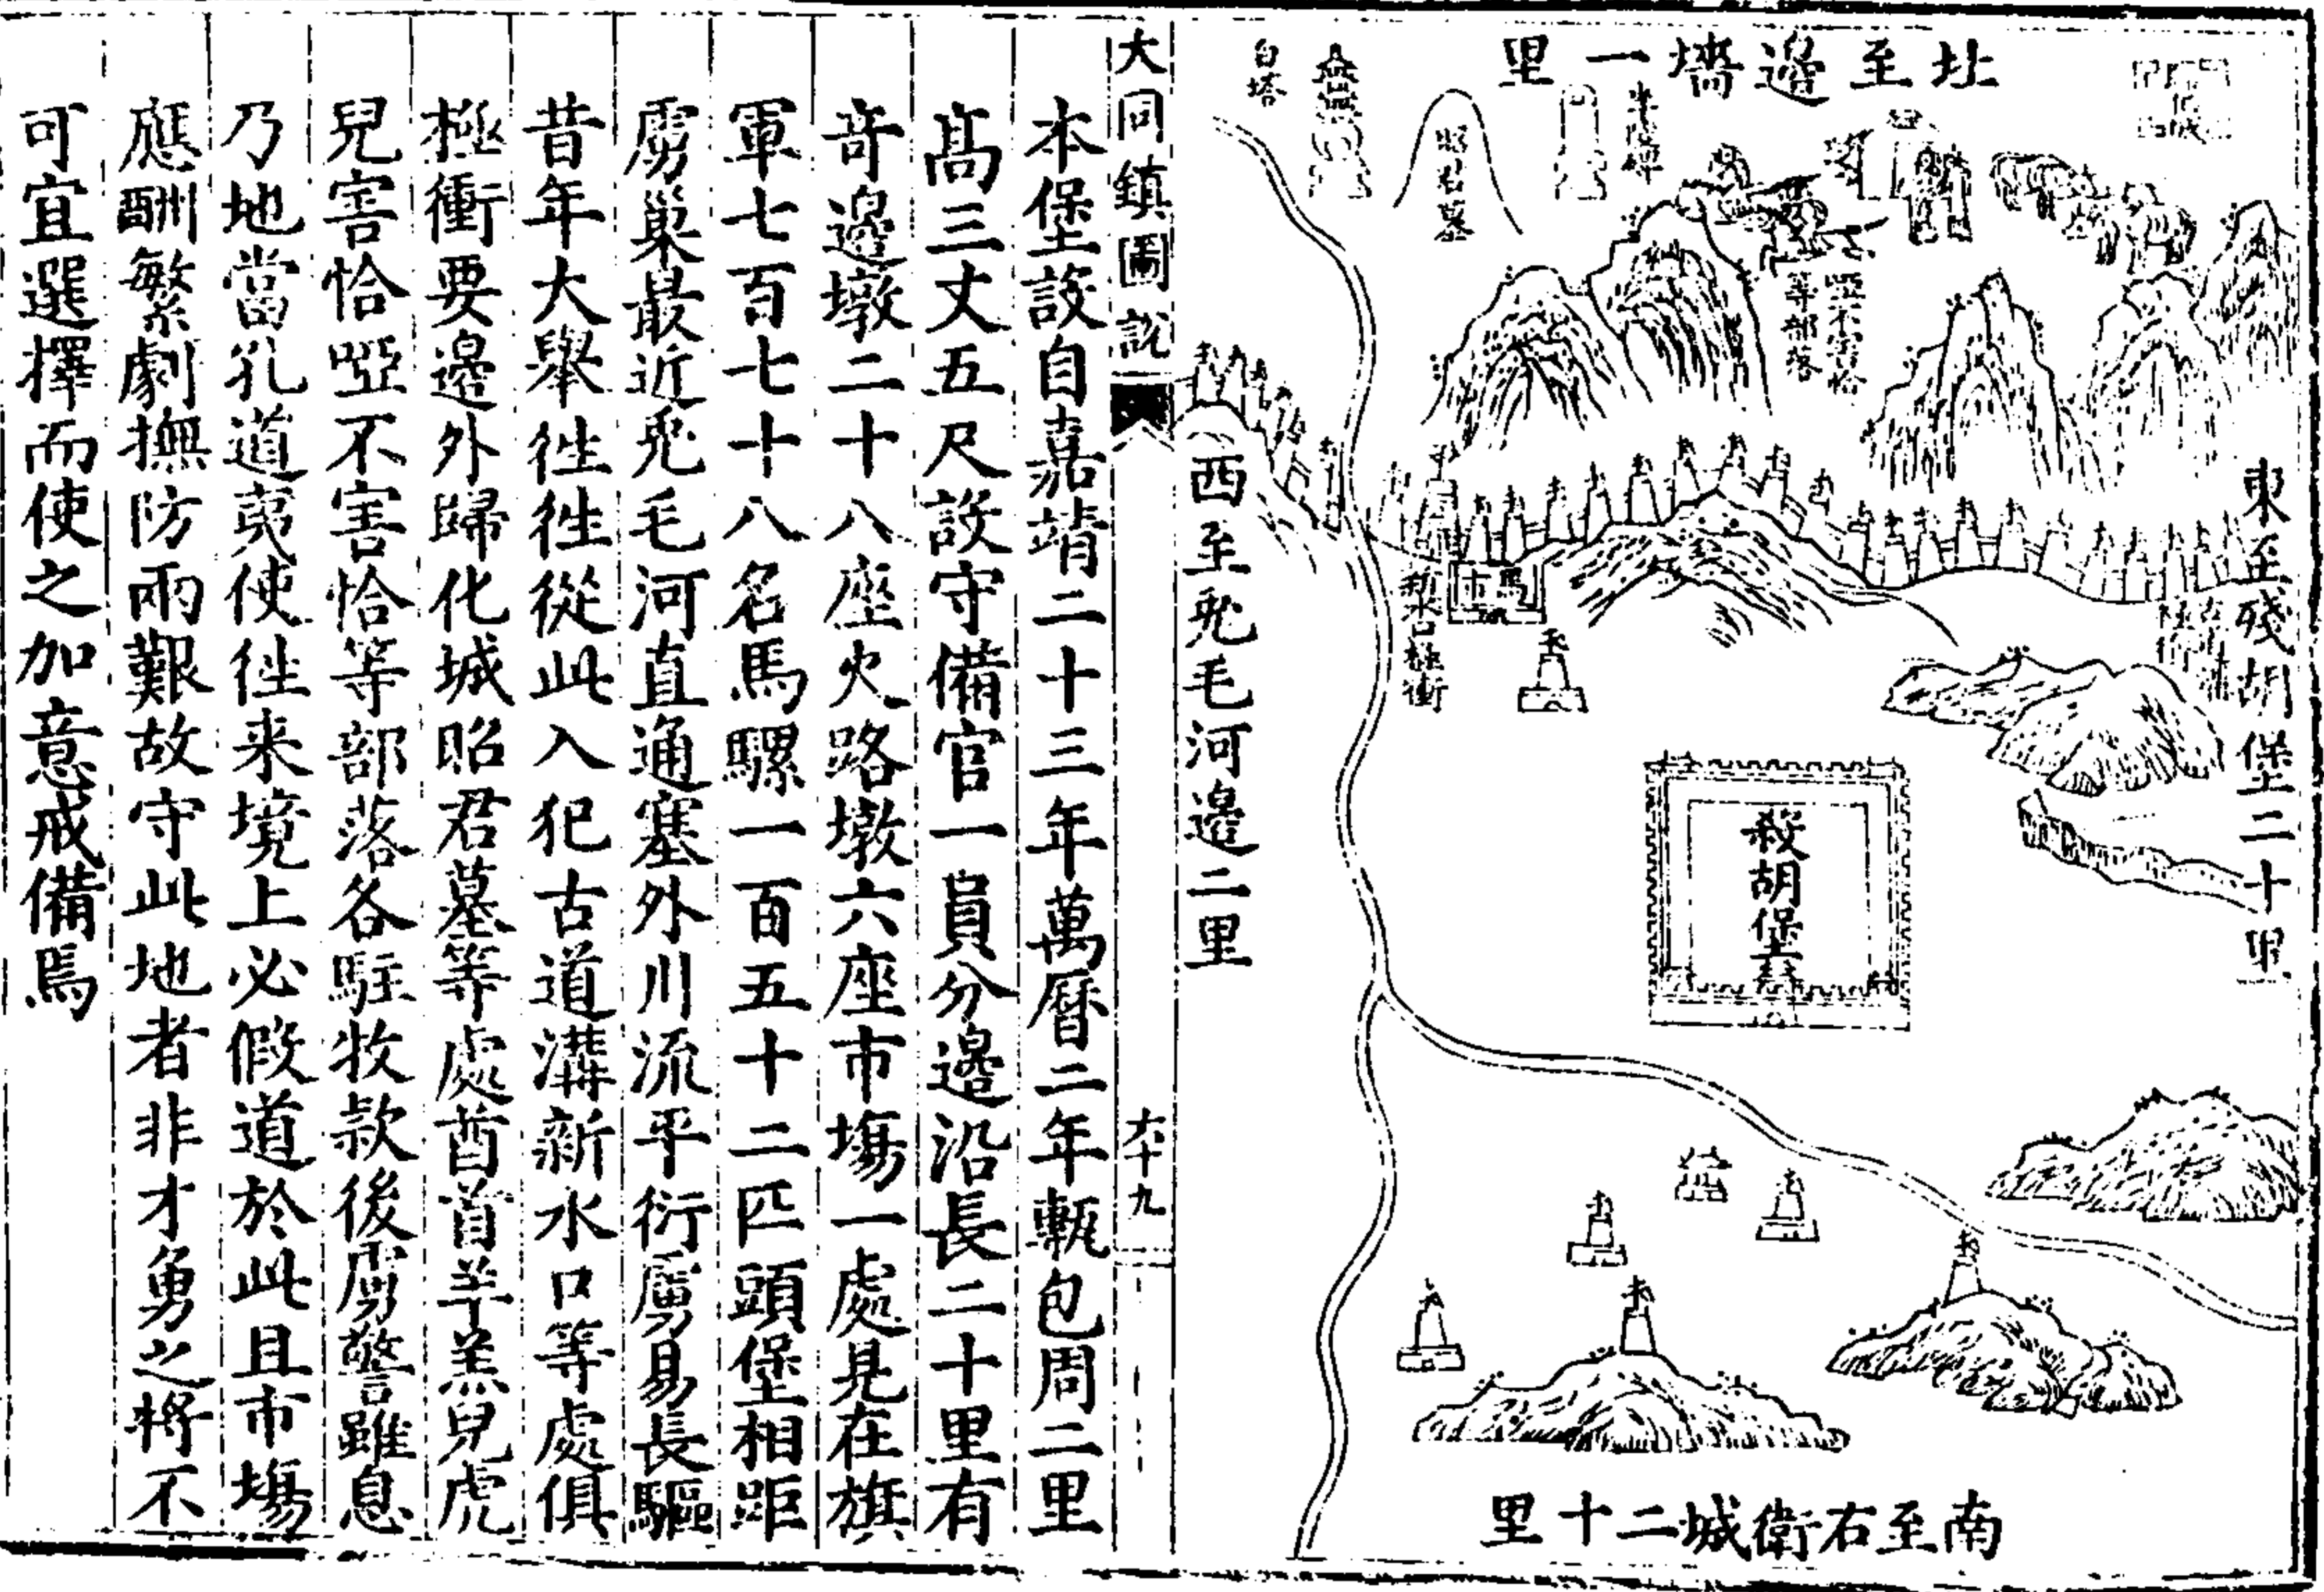 北至邊墻一里
東至殘胡堡二十里
南至右衛城二十里
西至兎毛河邊二里
白塔
昭君墓
等部落
馬市
新水口極衝
殺胡堡
大同鎮圖說
六十九
本堡設自嘉靖二十三年萬曆二年甎包周二里
高三丈五尺設守備官一員分邊沿長二十里有
竒邊墩二十八座火路墩六座市塲一處見在旗
軍七百七十八名馬騾一百五十二匹頭堡相距
虜巢最近兎毛河直通塞外川流平衍虜易長驅
昔年大舉徃徃從此入犯古道溝新水口等處俱
極衝要邊外歸化城昭君墓等處酋首羊羔兒虎
兒害恰啞不害恰等部落各駐牧款後虜警雖息
乃地當孔道夷使徃来境上必假道於此且市塲
應酬繁劇撫防兩艱故守此地者非才勇之將不
可宜選擇而使之加意戒備焉